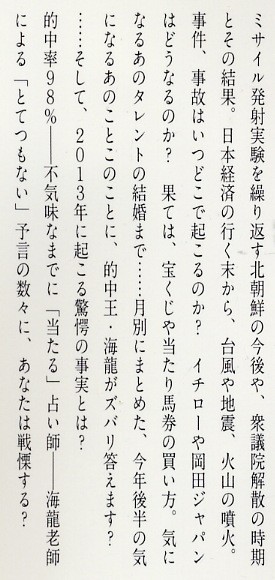 ミサイル発射実験を繰り返す北朝鮮の今後や、衆議院解散の時期
とその結果。日本経済の行く末から、台風や地震、火山の噴火。
事件、事故はいつどこで起こるのか？　イチローや岡田ジャパン
はどうなるのか？　果ては、宝くじや当たり馬券の買い方。気に
なるあのタレントの結婚まで……月別にまとめた、今年後半の気
になるあのことこのことに、的中王・海龍がズバリ答えます？
……そして、2013年に起こる驚愕の事実とは？
的中率98％――不気味なまでに「当たる」占い師――海龍老師
による「とてつもない」予言の数々に、あなたは戦慄する？